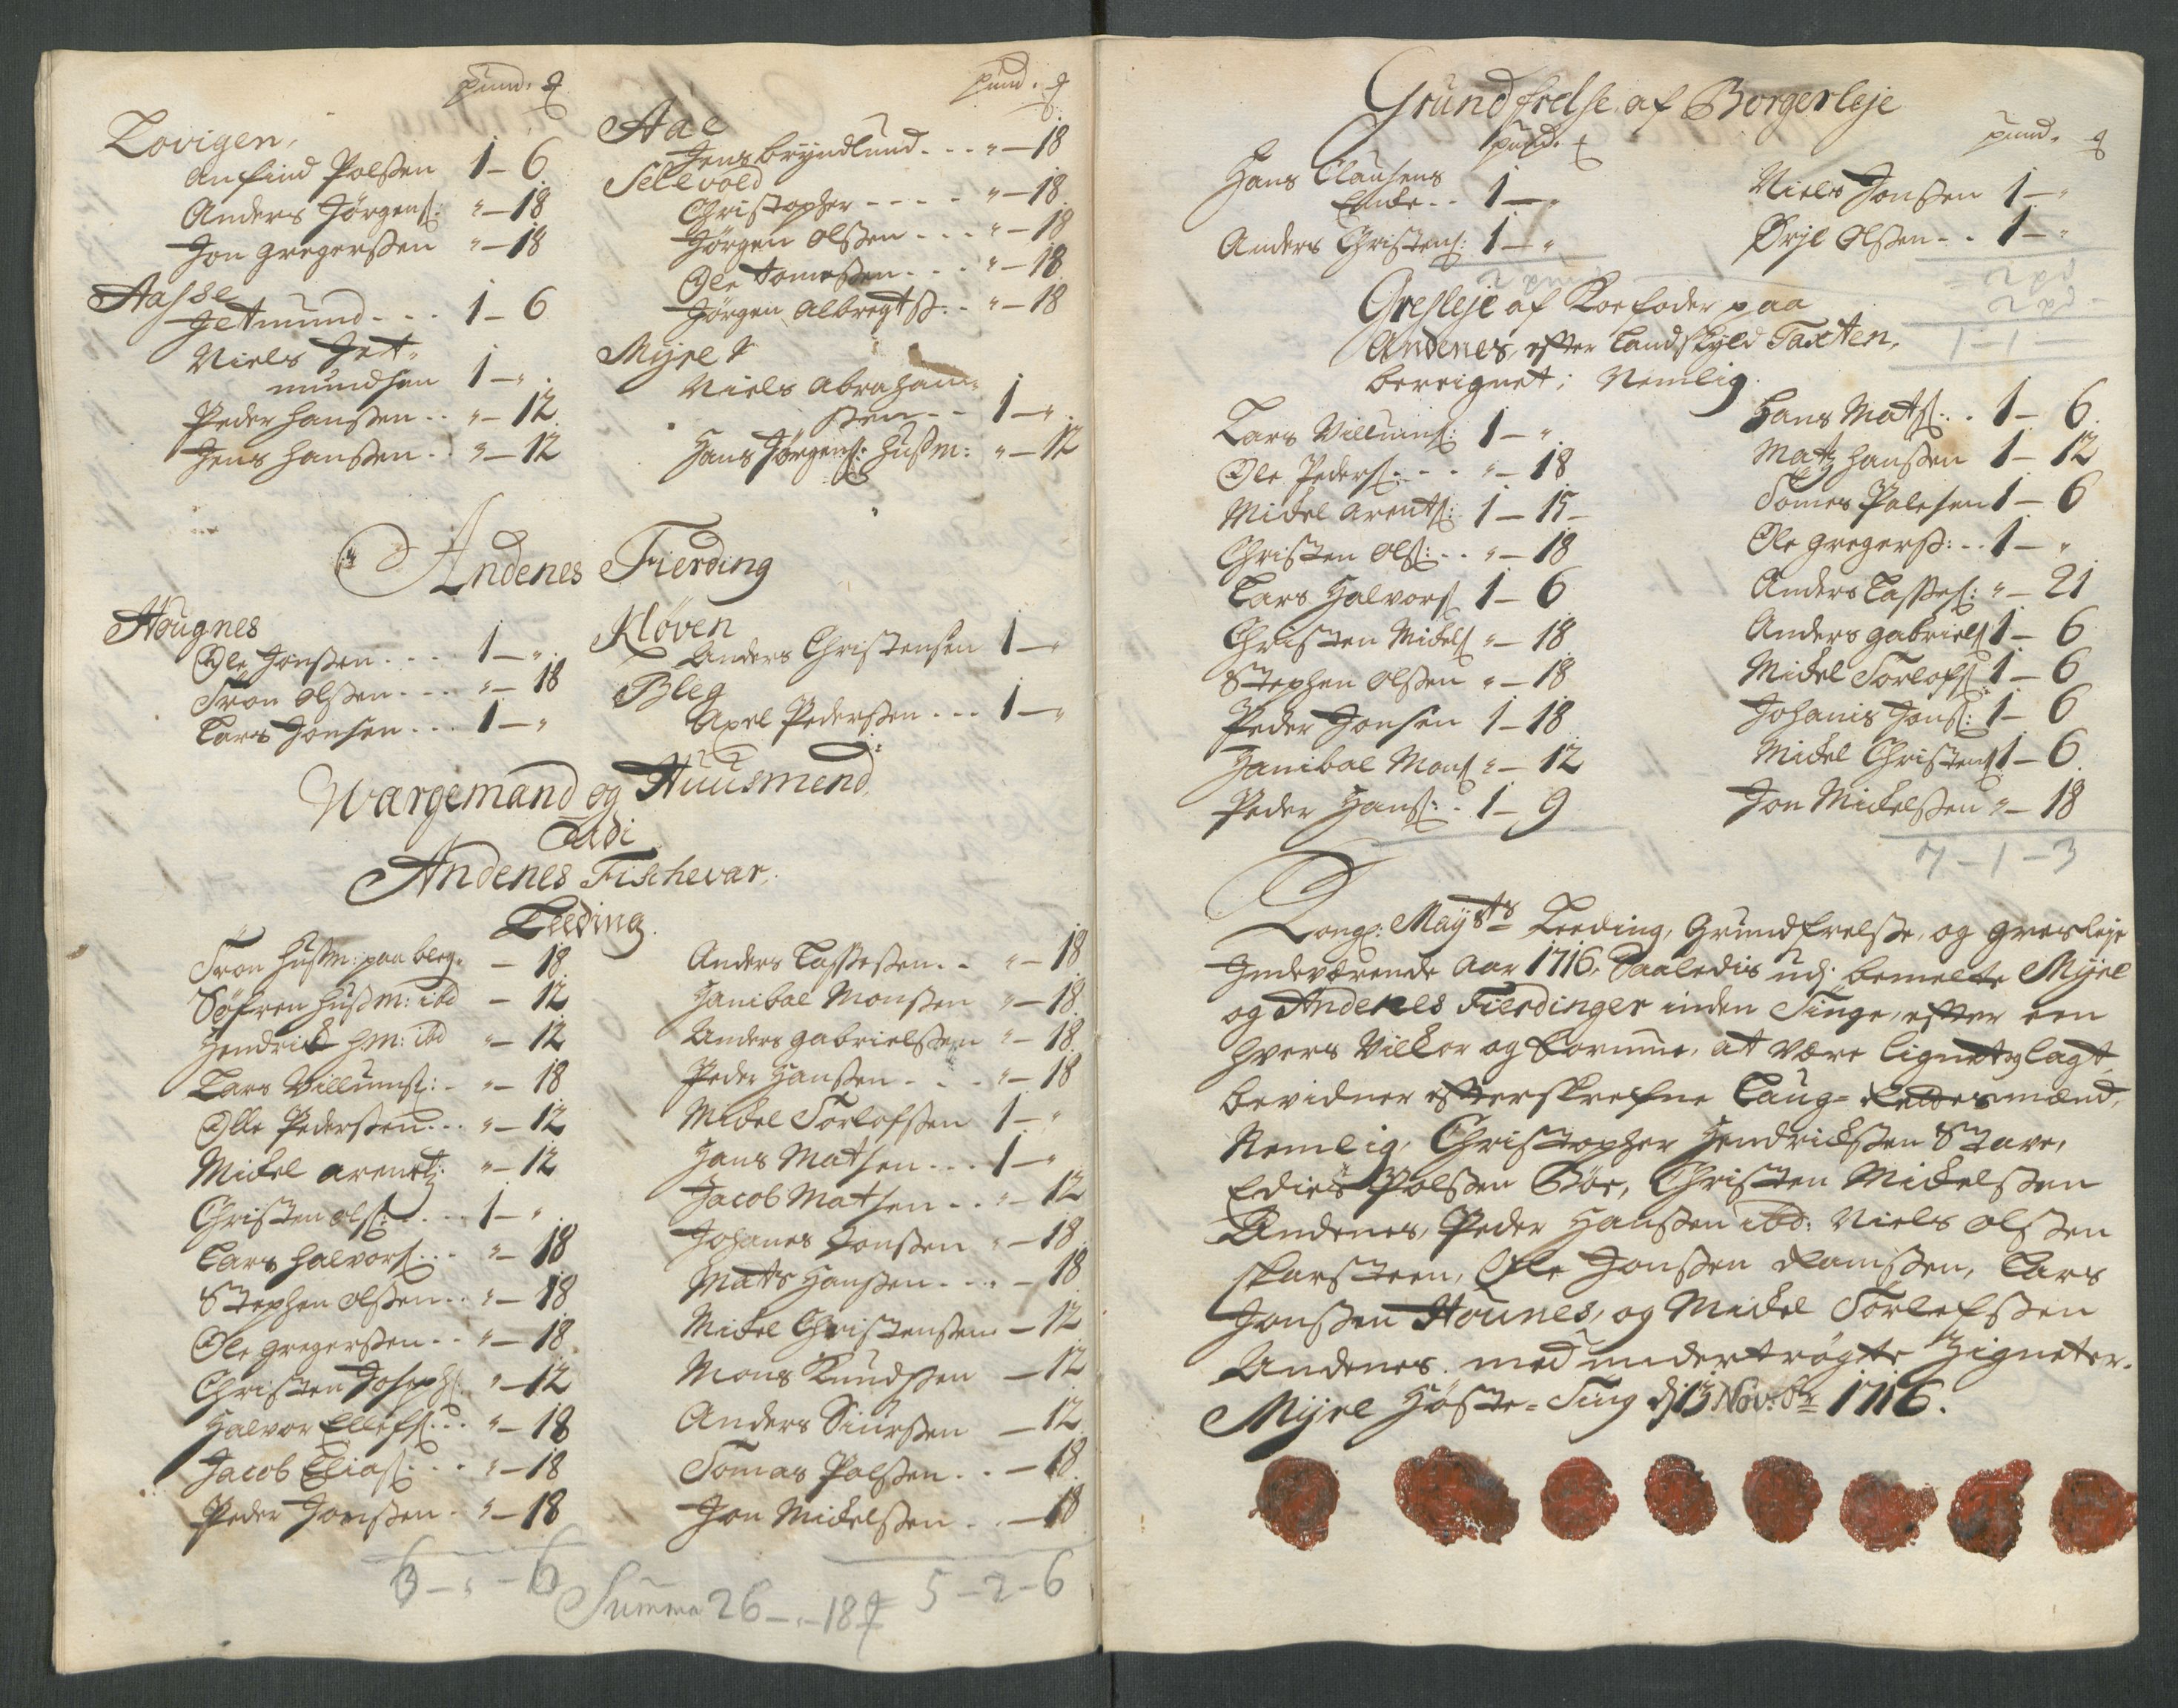 pund. q
Lovigen,
Anfind Polßen 1 – 6
Anders Jörgens: " – 18
Jon gregerßen " – 18
Aasse
Jetmund - - - 1 – 6
Niels Jet-
mundsen 1 – "
Peder hanßen - - " – 12
Jens hanßen - - " – 12
pund. q
Aae
Jens bryndlund - - - " – 18
Sellevold
Christopher - - - - " – 18
Jörgen olßen - - - " – 18
Ole tomeßen - - - " – 18
Jörgen Albregtß: - " – 18
Myre
Niels Abraham-
ßen - - 1 – "
Hans Jörgens: husm: " – 12
Andenes Fierding
Hougnes
Ole Jonßen - - - 1 – "
Tron olßen - - - " – 18
Lars Jonsen - - - 1 – "
Kløven
Anders Christensen 1 – "
Bleg
Axel Pederßen - - - 1 – "
Wargemand og Huusmend
udi
Andenes Fischevær,
Leeding.
Tron husm: paa bleg - – 18
Söfren husm: ibd – 12
Hendrick hm: ibd " – 12
Lars Villumß: - " – 18
Olle Pederßen - - " – 12
Mickel arentz: " – 12
Christen ols: - - - 1 – "
Lars halvors: - - " – 18
Stephen olßen - - " – 18
Ole gregerßen - - " – 18
Christen Josephs: " – 12
Halvor Ellefs: - - " – 18
Jacob Elias: - - - " – 18
Peder Jonßen - " – 18
6 – " – 6
Anders Laßeßen - - " – 18
Hanibal Monßen " – 18
Anders gabrielßen " – 18
Peder Hanßen - - - " – 18
Mickel Torlofßen 1 – "
Hans Matsen - - - 1 – "
Jacob Matsen - - " – 12
Johanes Jonßen " – 18
Mats Hanßen - - - – 18
Mickel Christensen – 12
Mons Knudßen – 12
Anders Siurßen – 12
Tomas Polßen - - – 18
Jon Mickelßen - - – 18
5 – 2 – 6
Summa 26 – " – 18
Grundfrelse af Borgerleje
pund. q
Hans Clausens
Encke - - 1 – "
Anders Christens: 1 – "
pund. q
Niels Jonßen 1 – "
Ørje Olßen - - 1 – "
Gresleje af Koefoder paa
Andenes, efter Landskyld Taxten,
bereignet; Nemlig.
Lars Villums: 1 – "
Ole Peders: - - - " – 18
Mickel arents: 1 – 15
Christen ols: - - " – 18
Lars Halvors 1 – 6
Christen Mickels " – 18
Stephen olßen " – 18
Peder Jonsen 1 – 18
Hanibal Mons " – 12
Peder Hans: - 1 – 9
Hans Mats: - - 1 – 6
Matz hanßen 1 – 12
Tomes Polesen 1 – 6
Ole gregerß: - - 1 – "
Anders Laßes: " – 21
Anders gabriels 1 – 6
Mickel Torlofs: 1 – 6
Johanis Jons: 1 – 6
Mickel Christens 1 – 6
Jon Mickelßen " – 18
7 – 1 – 3
Kong: Maysts Leeding, Grundfrelße, og gresleje
Indeværende Aar 1716, Saaledis udj bemelte Myre
og Andenes Fierdinger inden Tinge, efter een
hvers Vilkor og formue, at være lignet og lagt
bevidner efterskrefne Laug-Rettesmænd,
Nemlig, Christopher Hendrickßen Stave,
Edies Polßen Böe, Christen Mickelßen
Andenes, Peder Hanßen ibd: Niels olßen
skarsteen, Ole Jonßen Ramßen, Lars
Jonßen Hounes, og Mickel Torlefßen
Andenes. med undertrögte Zigneter.
Myre Höste-Ting d 13 Nov:br 1716.